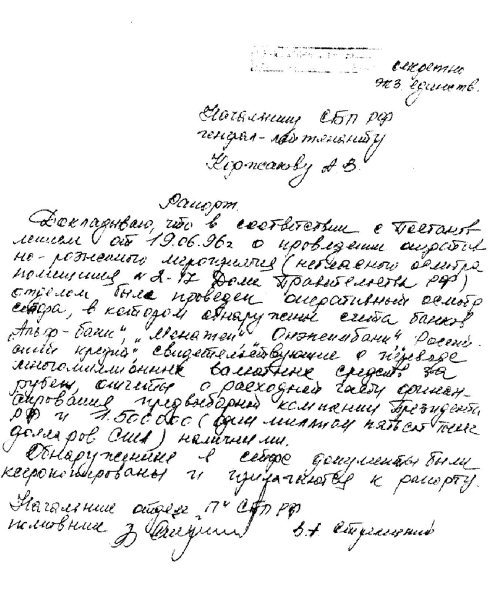 секретно
экз. единств.
Начальнику СБП РФ
генерал-лейтенанту
Коржакову А.В.
Рапорт.
Докладываю, что в соответствии с Постанов
лением от 19.06.96г о проведении оператив
но-розыскного мероприятия (негласного осмотра
помещения № 2-17 Дома Правительства РФ)
отделом был проведен оперативный осмотр
сейфа, в котором обнаружены счета банков
"Альфа-банк", "Менатеп", "Онэксимбанк", "Россий
ский кредит", свидетельствующие о переводе
многомиллионных валютных средств за
рубеж, отчеты о расходной части финан-
сирования предвыборной компании Президента
РФ и 1.500 000 (один миллион пятьсот тысяч
долларов США) наличными.
Обнаруженные в сейфе документы были
ксерокопированы и прилагаются к рапорту.
Начальник отдела "П" СБП РФ
полковник
В.А. Стрелецкий